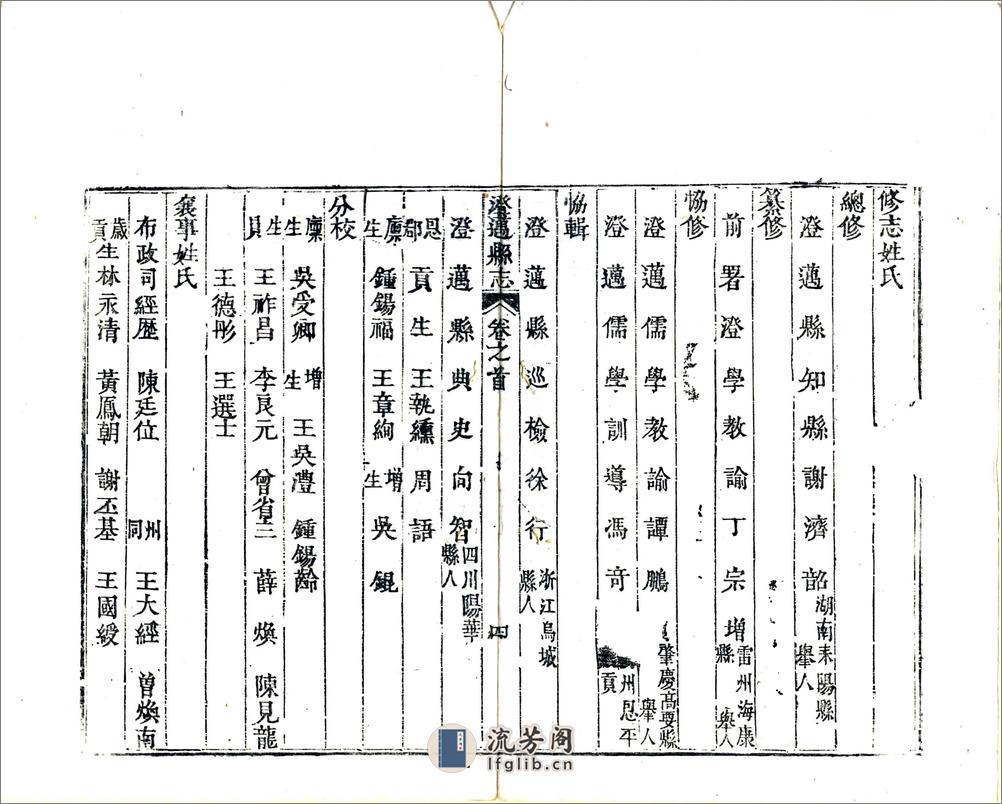 修志姓氏
總修
澄邁縣知縣謝濟韶湖南耒陽縣舉人
纂修
前署澄學教諭丁宗增雷州海康縣舉人
恊修
澄邁儒學教諭譚鵬肇慶高要縣舉人
澄邁儒學訓導馮奇州恩平貢
恊輯
澄邁縣巡檢徐行浙江烏城縣人
澄邁縣志 卷之首 四
澄邁縣典史向智四川陽華縣人
恩貢生王執纁 周語
廪生鍾錫福 王章絢 增生吳錕
分校
廪生吳受卿 增生王吳澧 鍾錫齡
生員王祚昌 李良元 曾省三 薛煥 陳見龍
王德彤 王選士
襄事姓氏
布政司經歷 陳廷位 州同王大經 曽煥南
歲貢生林永清 黃鳳朝 謝丕基 王國綬
流芳阁
lfglib.cn